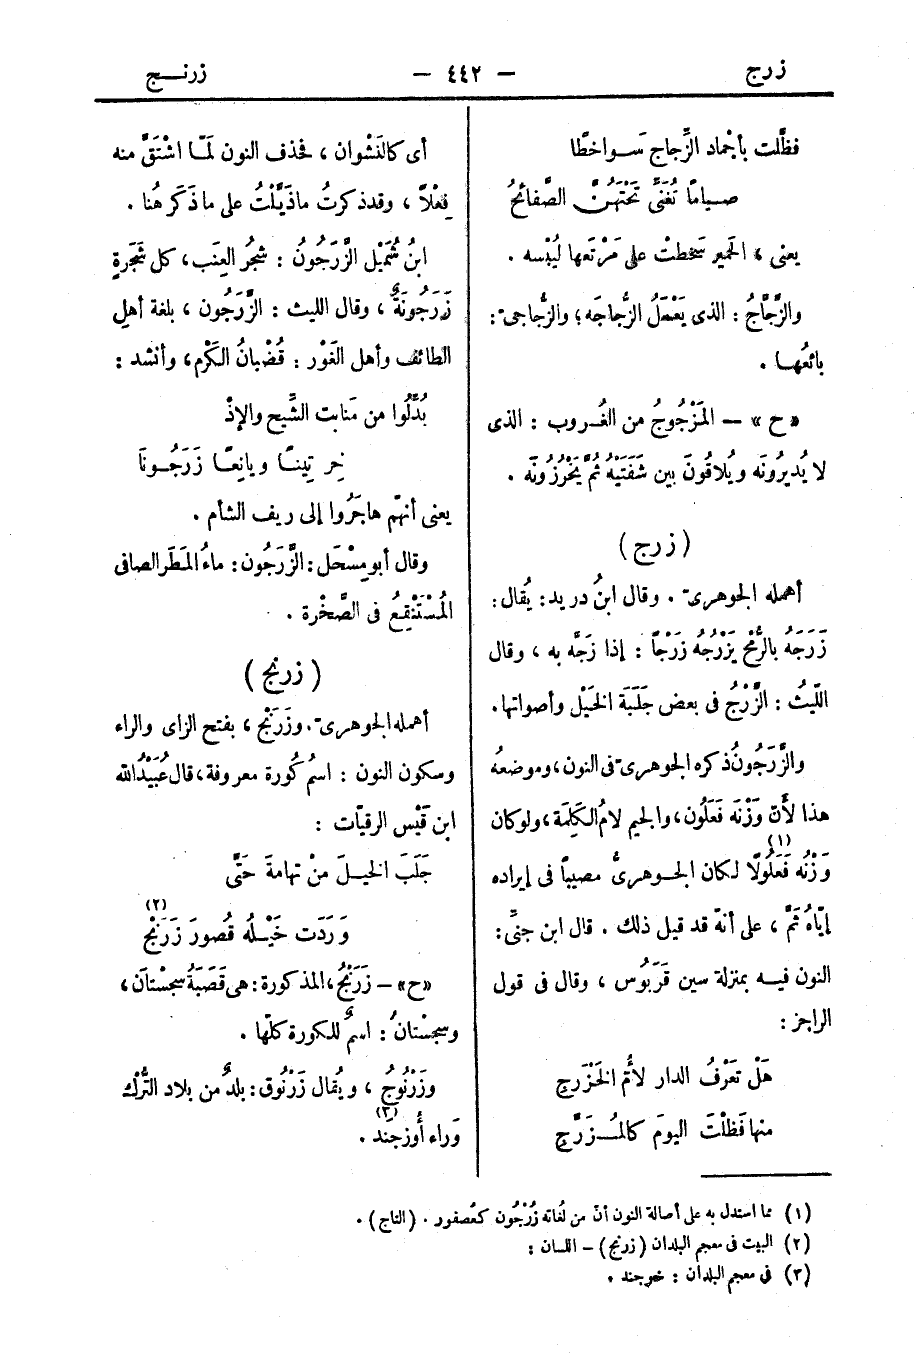 زرج — ٤٤٢ — زرنـج
فظَّلت بأجْماد الزِّجاج سَـواخطًا
صـيامًا تُغَنَّى تَحْتَهُنَّ الصَّفائحُ
يعنى ، الحَمير سَخِطتْ على مَرْتَعها ليُبْسه .
والزَّجَّاجُ : الذى يَعْمَلُ الزُّجاجَه ؛ والزُّجاجىّ :
بائعُهـا .
« ح » — المَزْجُوجُ من الغُـروب : الذى
لا يُديرُونَه ويُلاقُونَ بين شَفَتَيْهُ ثُمَّ يَخْرُزُونَه .
( زرج )
أهمله الجوهرىّ . وقال ابنُ دريد : يُقال :
زَرَجَهُ بالرُّمْح يَزْرُجُه زَرْجًا : إذا زَجَّه به ، وقال
اللَّيثُ : الزَّرْجُ فى بعض جَلَبَة الخَيْل وأصواتها .
والزَّرَجُونُ ذكره الجوهرىّ فى النون ، وموضعُه
هذا لأنّ وَزْنَه فَعَلُون ، والجيم لامُ الكَلِمَة ، ولوكان
وَزْنُه فَعَلُولًا (١) لكان الجـوهرىُّ مصيباً فى إيراده
إيّاهُ ثَمَّ ، على أنهّ قد قيل ذلك . قال ابن جنِّى :
النون فيـه بمنزلة سين قَرَبُوس ، وقال فى قول
الراجز :
هَلْ تَعْرَفُ الدار لأُمّ الخَزْرَجِ
منها فَظَلْتَ اليومَ كالمُـزَرَّجِ
أى كالنَشْوان ، فحذف النون لمَّا اشْتَقَّ منه
فِعْلًا ، وقد ذكرتُ ماذَيَّلْتُ على ما ذَكَر هُنا .
ابنُ شُمَيْل الزَّرَجُونُ : شجرُ العِنَب ، كل شَجَرةٍ
زَرَجُونَةٌ ، وقال الليث : الزَّرَجُون ، بلغة أهلِ
الطائف وأهل الغَوْر : قُضْبانُ الكَرْم ، وأنشد :
بُدِّلُوا من مَنابت الشَّيح والإذْ
خِر تِينًـا ويانعًـا زَرَجُـونَا
يعنى أنهّم هاجَرُوا إلى ريف الشأم .
وقال أبو مِسْحَل : الزَّرَجُون : ماءُ المَطَر الصافى
المُسْتَنْقِعُ فى الصَّخْرة .
( زرنج )
أهمله الجوهرىّ . وزَرَنْج ، بفتح الزاى والراء
وسكون النون : اسمُ كُورة معروفة ، قال عُبَيْدُ الله
ابن قَيْس الرقيّات :
جَلَبَ الخيـلَ منْ تهامةَ حَتَّى
وَرَدَت خَيْـلُه قُصورَ زَرَنْج (٢)
« ح » — زَرَنْجُ ، المذكورة : هى قَصَبَةُ سجسْتان ،
وسجسْتانُ : اسمٌ للكورة كلّها .
وزَرْنوجُ ، ويُقال زَرْنُوق : بلدٌ من بلاد التُّرْك
وَراء أُوزجَنْد (٣) .
(١) مما استدل به على أصالة النون أنّ من لغاته زُرْجُون كعُصفور . (التاج) .
(٢) البيت فى معجم البلدان (زرنج) – اللسان :
(٣) فى معجم البلدان : خوجند .